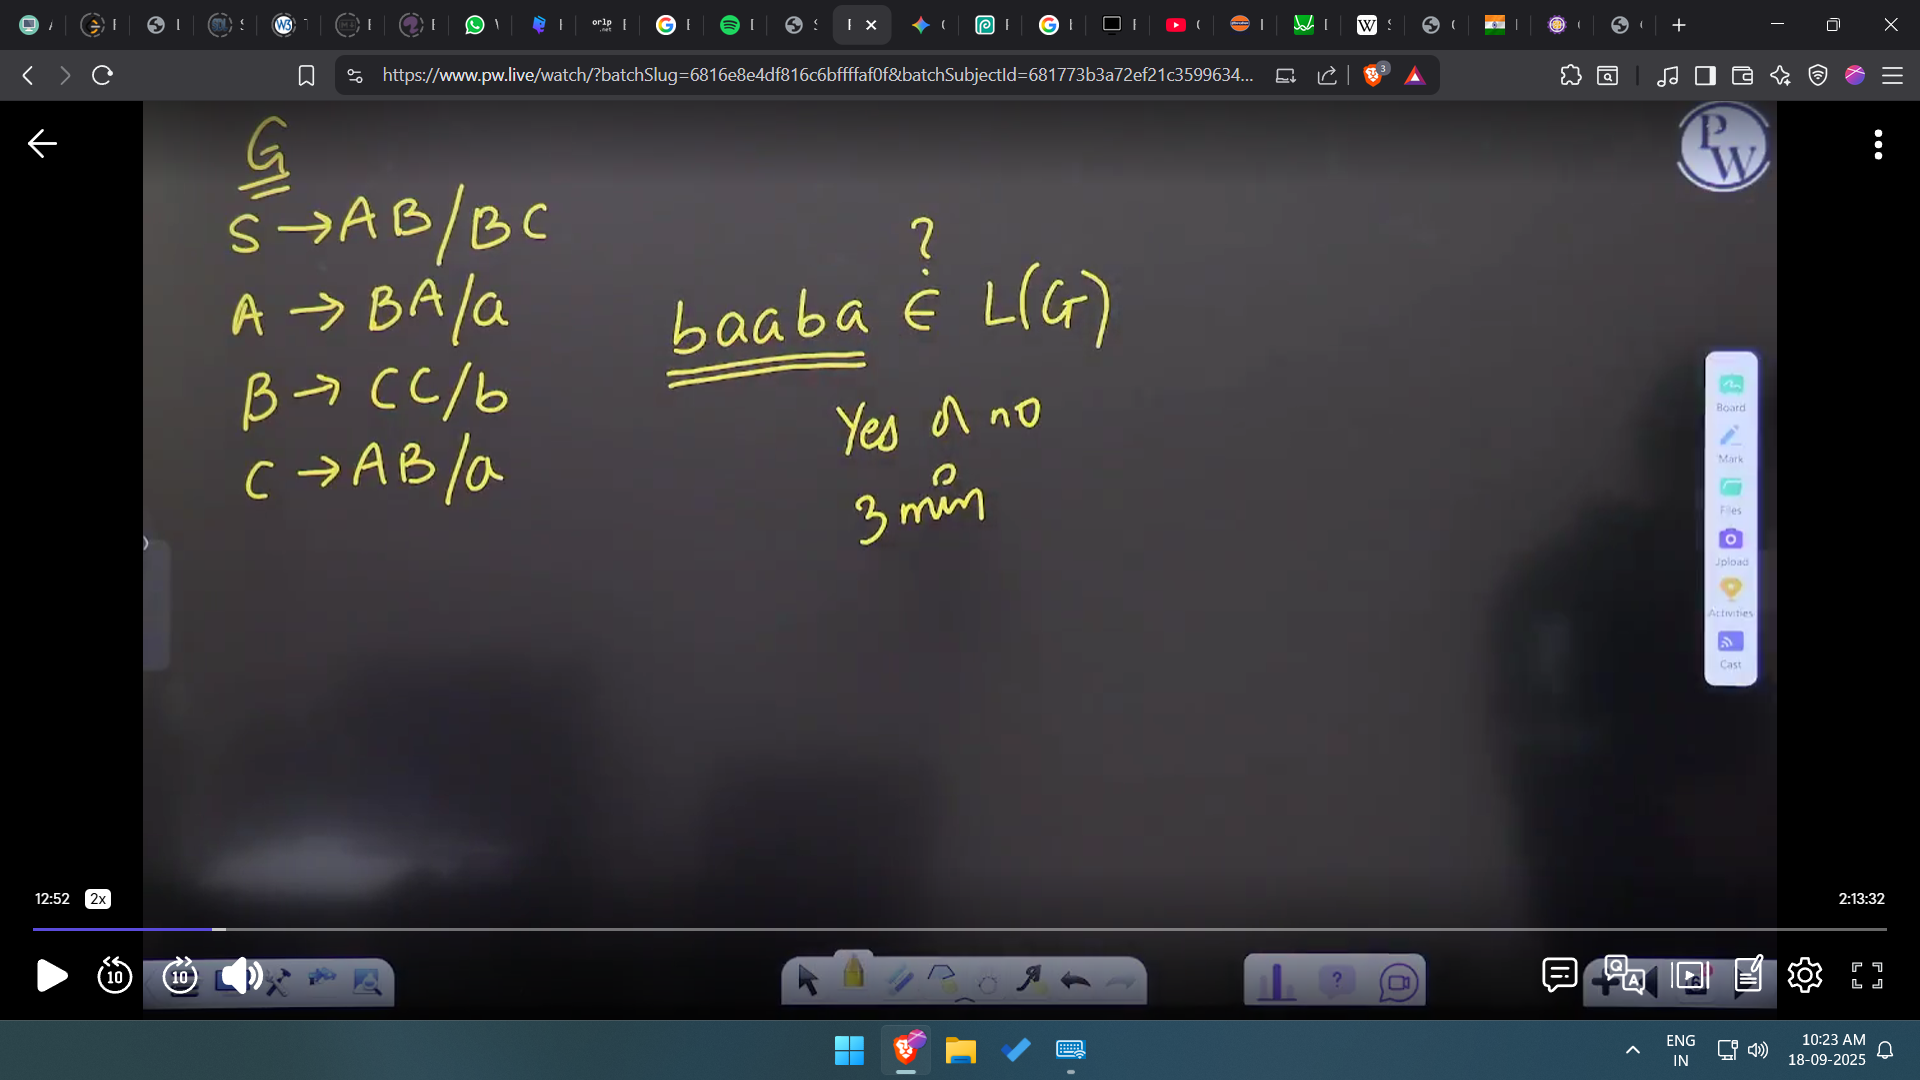 https://www.pw.live/watch/?batchSlug=6816e8e4df816c6bffffaf0f&batchSubjectId=681773b3a72ef21c3599634...
3
G
S → AB/BC
A → BA/a
B → CC/b
C → AB/a
?
baaba ∈ L(G)
Yes or no
3 min
PW
Board
Mark
Files
Upload
Activities
Cast
12:52 2x
2:13:32
10 10
ENG
IN
10:23 AM
18-09-2025